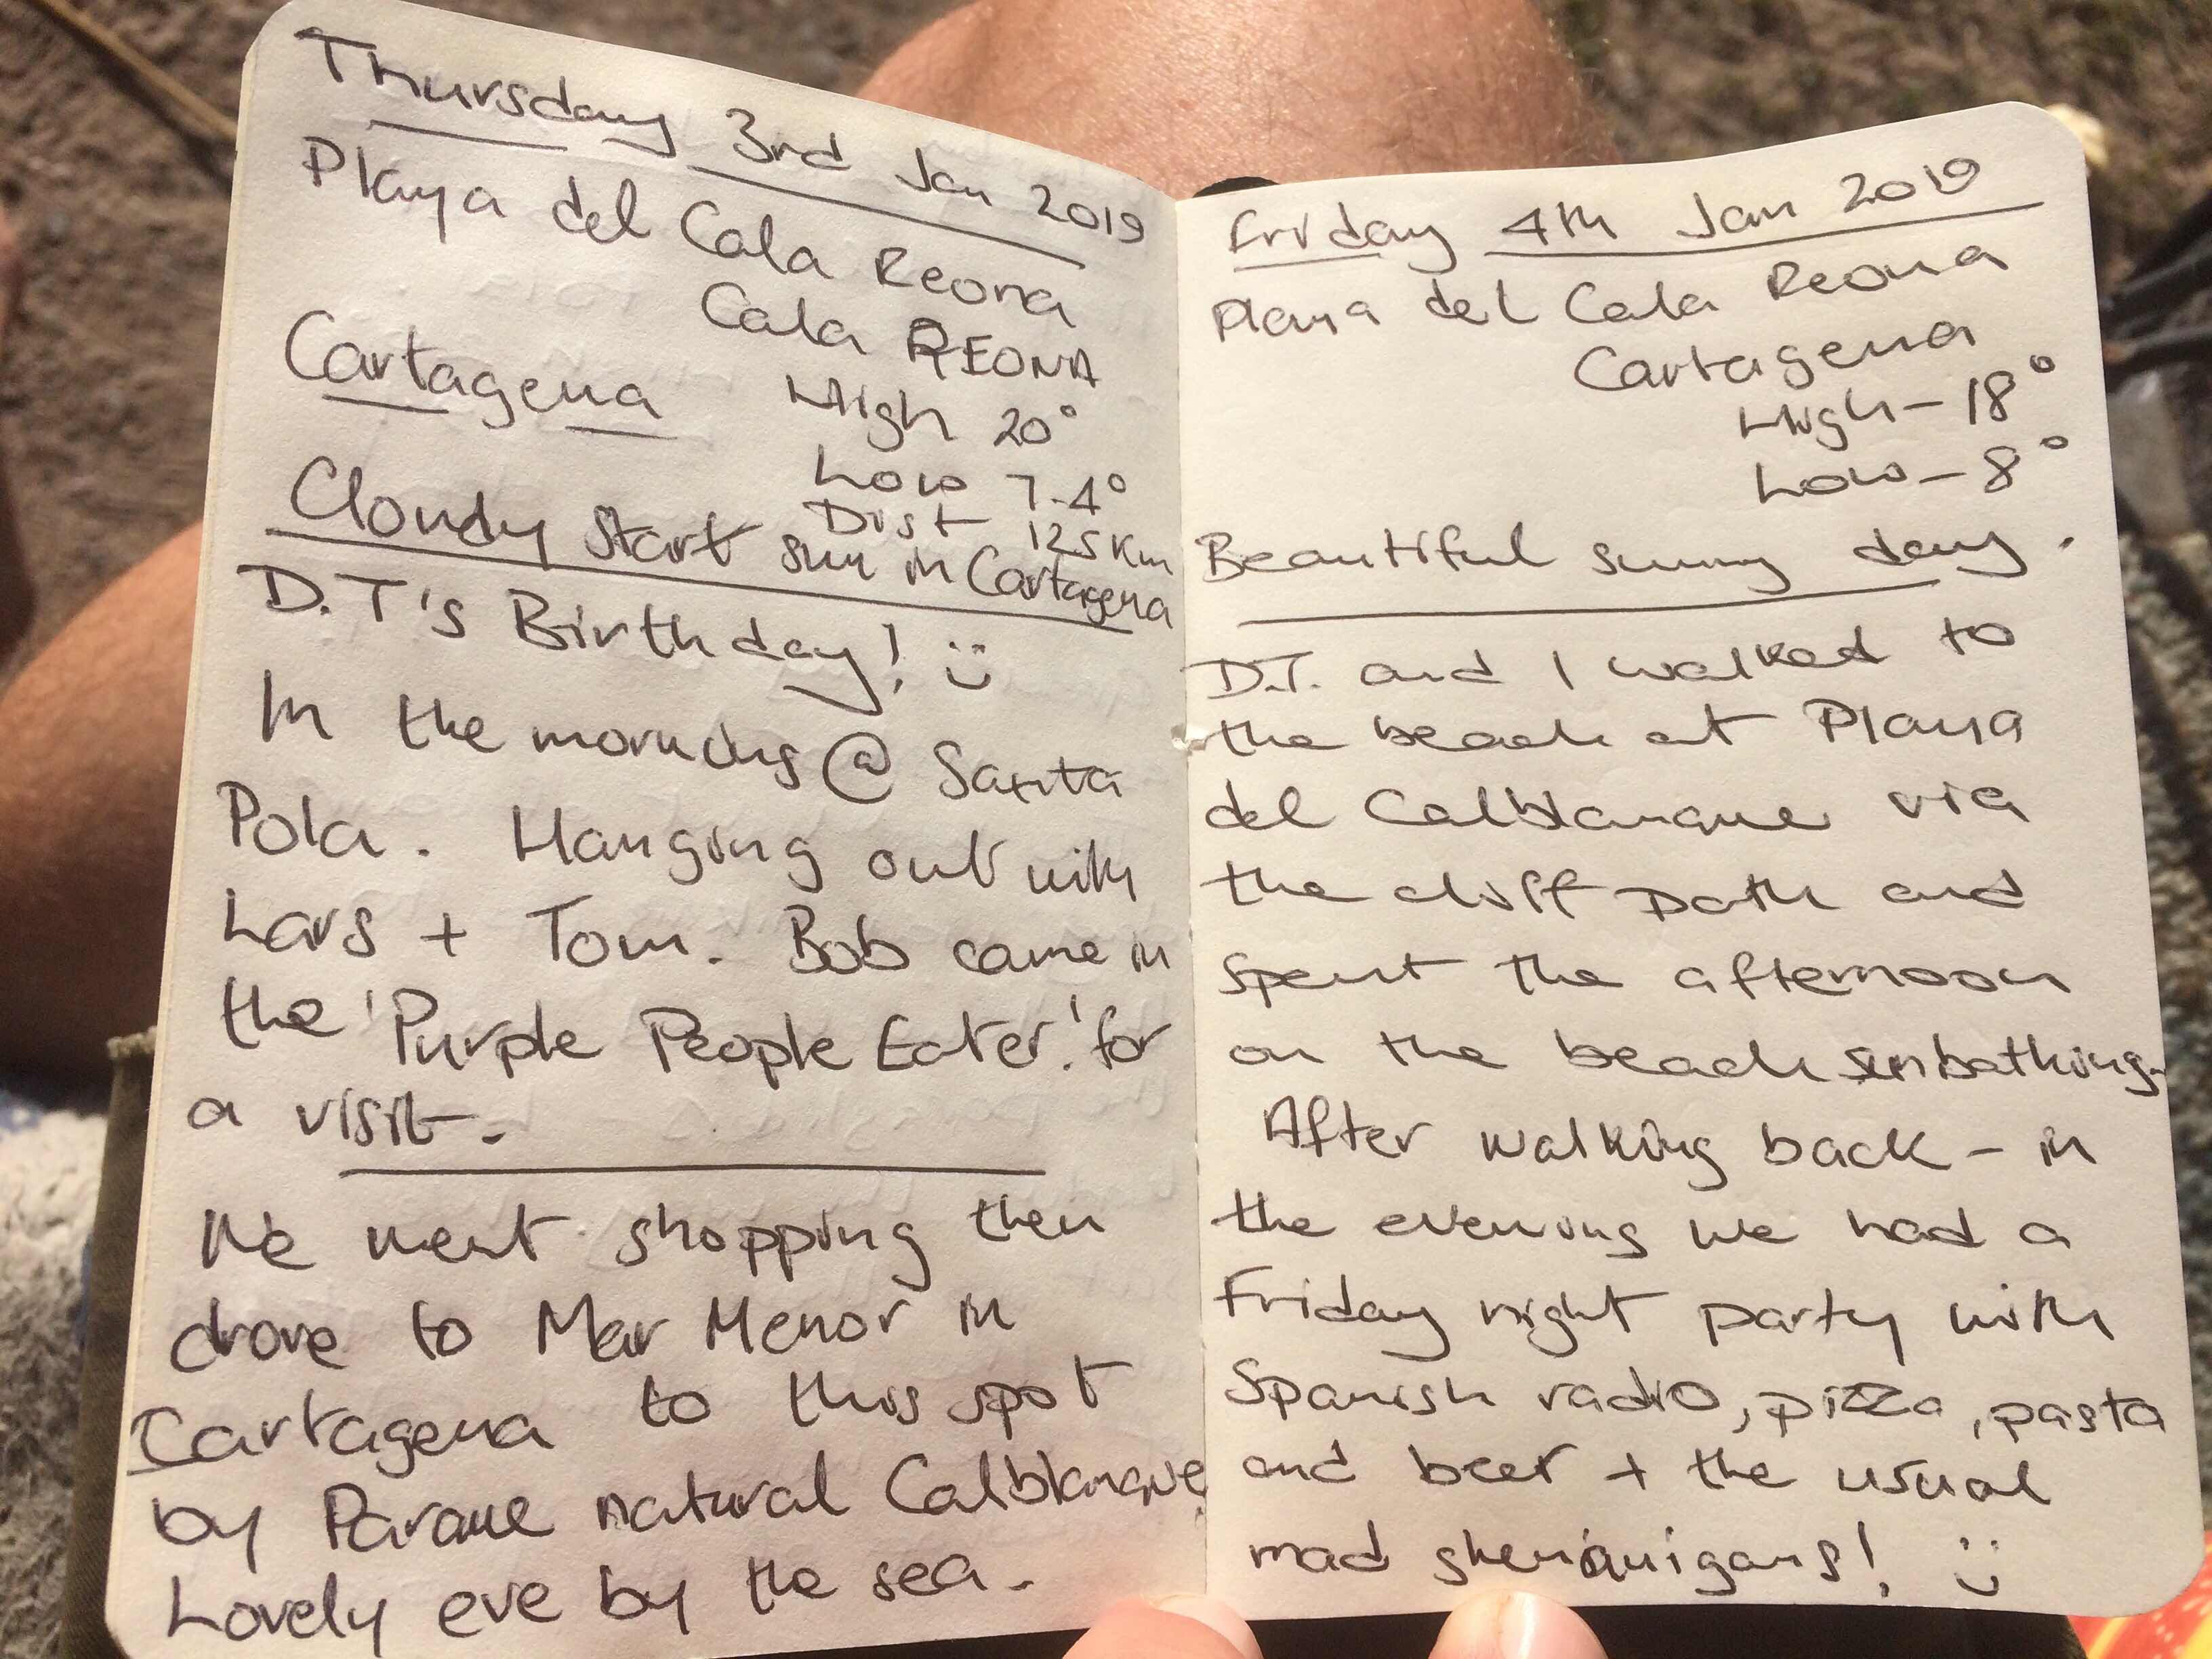 Thursday 3rd Jan 2019
Playa del Cala Reona
Cala REONA
Cartagena
High 20°
Low 7.4°
Dist 125 Km
Cloudy start sun in Cartagena
D.T's Birthday! :)
In the morning @ Santa
Pola. Hanging out with
Lars + Tom. Bob came in
the 'Purple People Eater.' for
a visit.
We went shopping then
drove to Mar Menor in
Cartagena to this spot
by Parque natural Calblanque.
Lovely eve by the sea.
Friday 4th Jan 2019
Playa del Cala Reona
Cartagena
High - 18°
Low - 8°
Beautiful sunny day.
D.T. and I walked to
the beach at Playa
del Calblanque via
the cliff path and
spent the afternoon
on the beach sunbathing.
After walking back - in
the evening we had a
Friday night party with
Spanish radio, pizza, pasta
and beer + the usual
mad shenanigans! :)